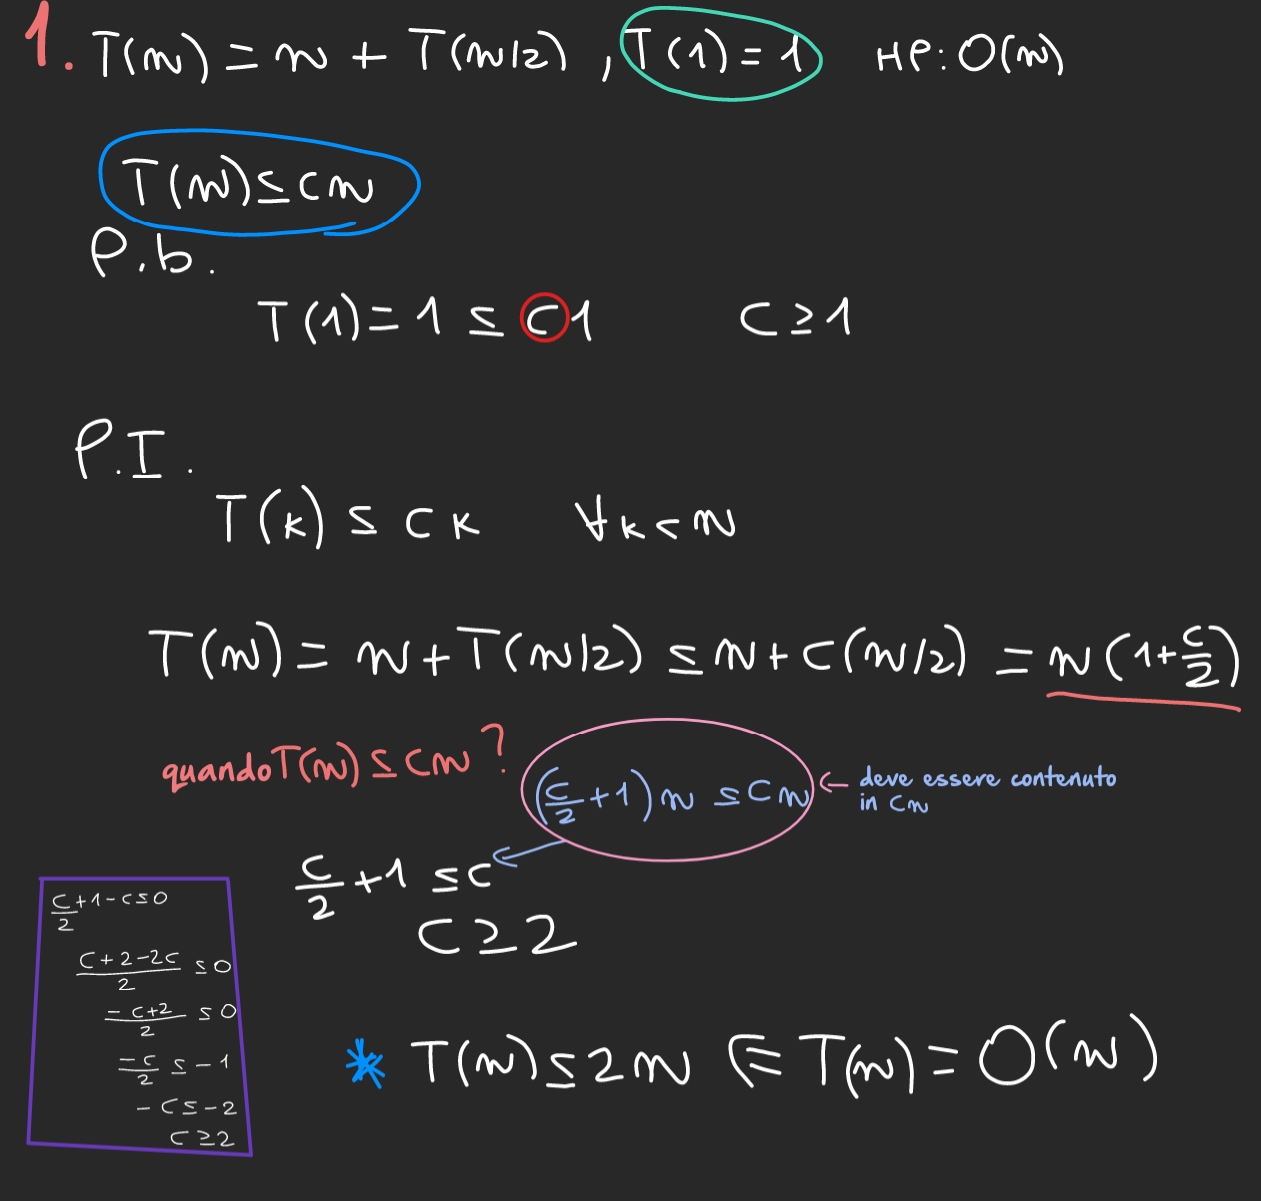 1. T(n) = n + T(n/2) , T(1) = 1 HP: O(n)
T(n) ≤ cn
P.b.
T(1) = 1 ≤ c1 c ≥ 1
P.I.
T(k) ≤ ck ∀k < n
T(n) = n + T(n/2) ≤ n + c(n/2) = n(1 + c/2)
quando T(n) ≤ cn ?
(c/2 + 1) n ≤ cn ← deve essere contenuto
in cn
c/2 + 1 ≤ c
c ≥ 2
c/2 + 1 - c ≤ 0
(c + 2 - 2c)/2 ≤ 0
(-c + 2)/2 ≤ 0
-c/2 ≤ -1
-c ≤ -2
c ≥ 2
* T(n) ≤ 2n ⋲ T(n) = O(n)